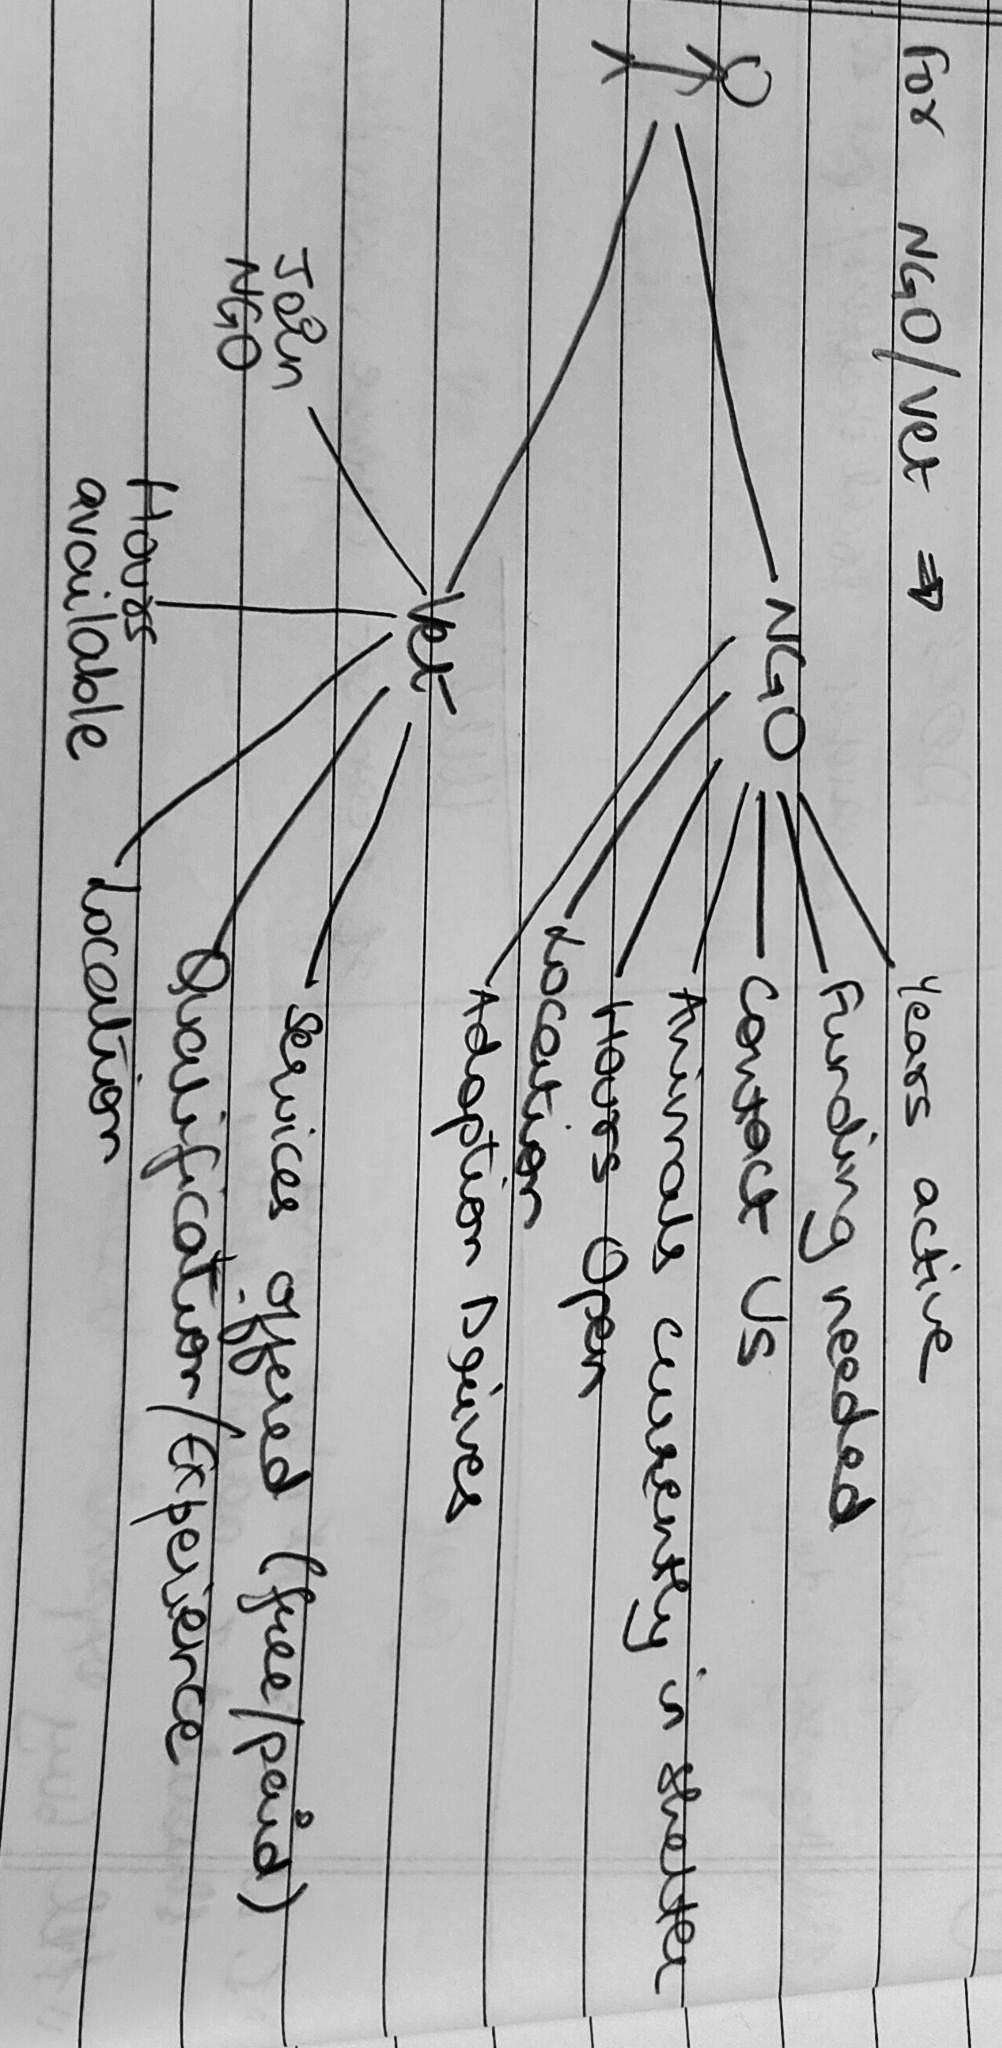 For NGO/vet ⇒
NGO
Years active
Funding needed
Contact Us
Animals currently in shelter
Hours Open
Location
Adoption Drives
Vet
Join
NGO
Hours
available
Services offered (free/paid)
Qualification/Experience
Location